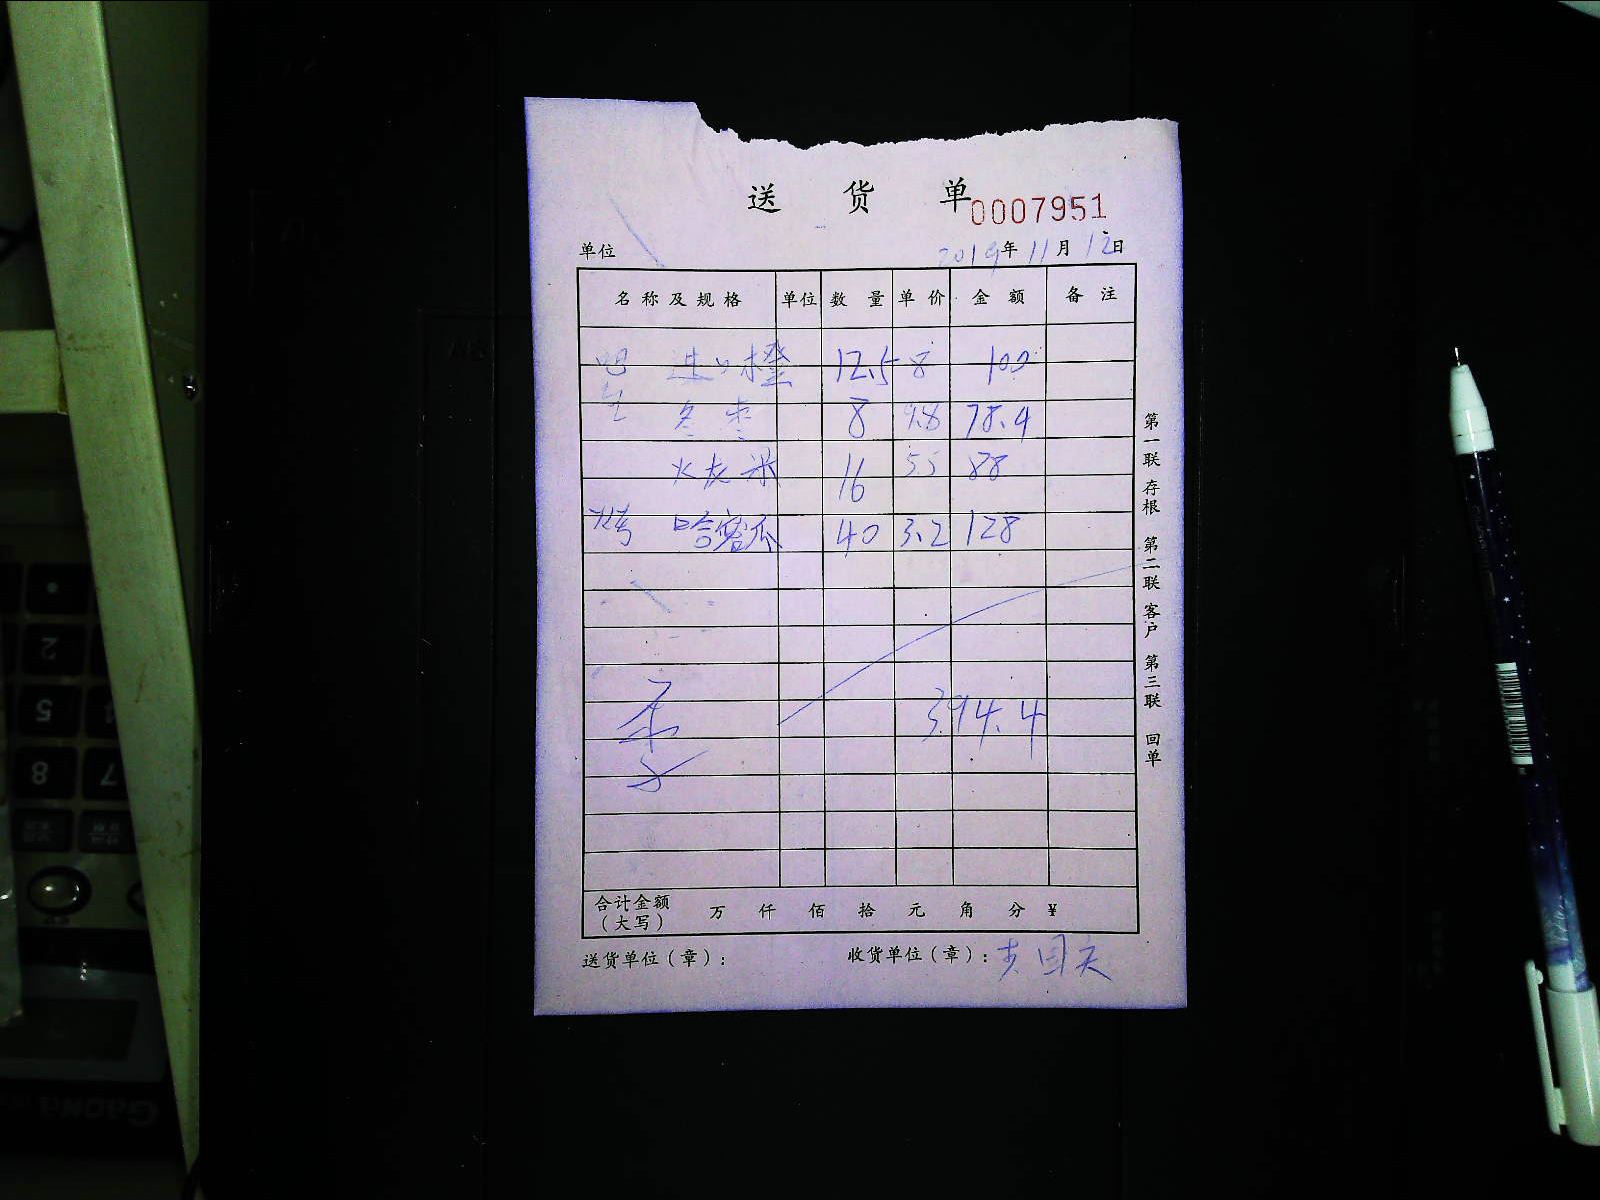 送 货 单 0007951
单位 2019年11月12日
名称及规格 单位 数量 单价 金额 备注
吧 进口橙 12.5 8 100
冬枣 8 9.8 78.4
火龙果 16 5.5 88
烤 哈密瓜 40 3.2 128
394.4
合计金额（大写） 万 仟 佰 拾 元 角 分 ¥
送货单位（章）： 收货单位（章）：
第一联 存根 第二联 客户 第三联 回单
2
5
8
7